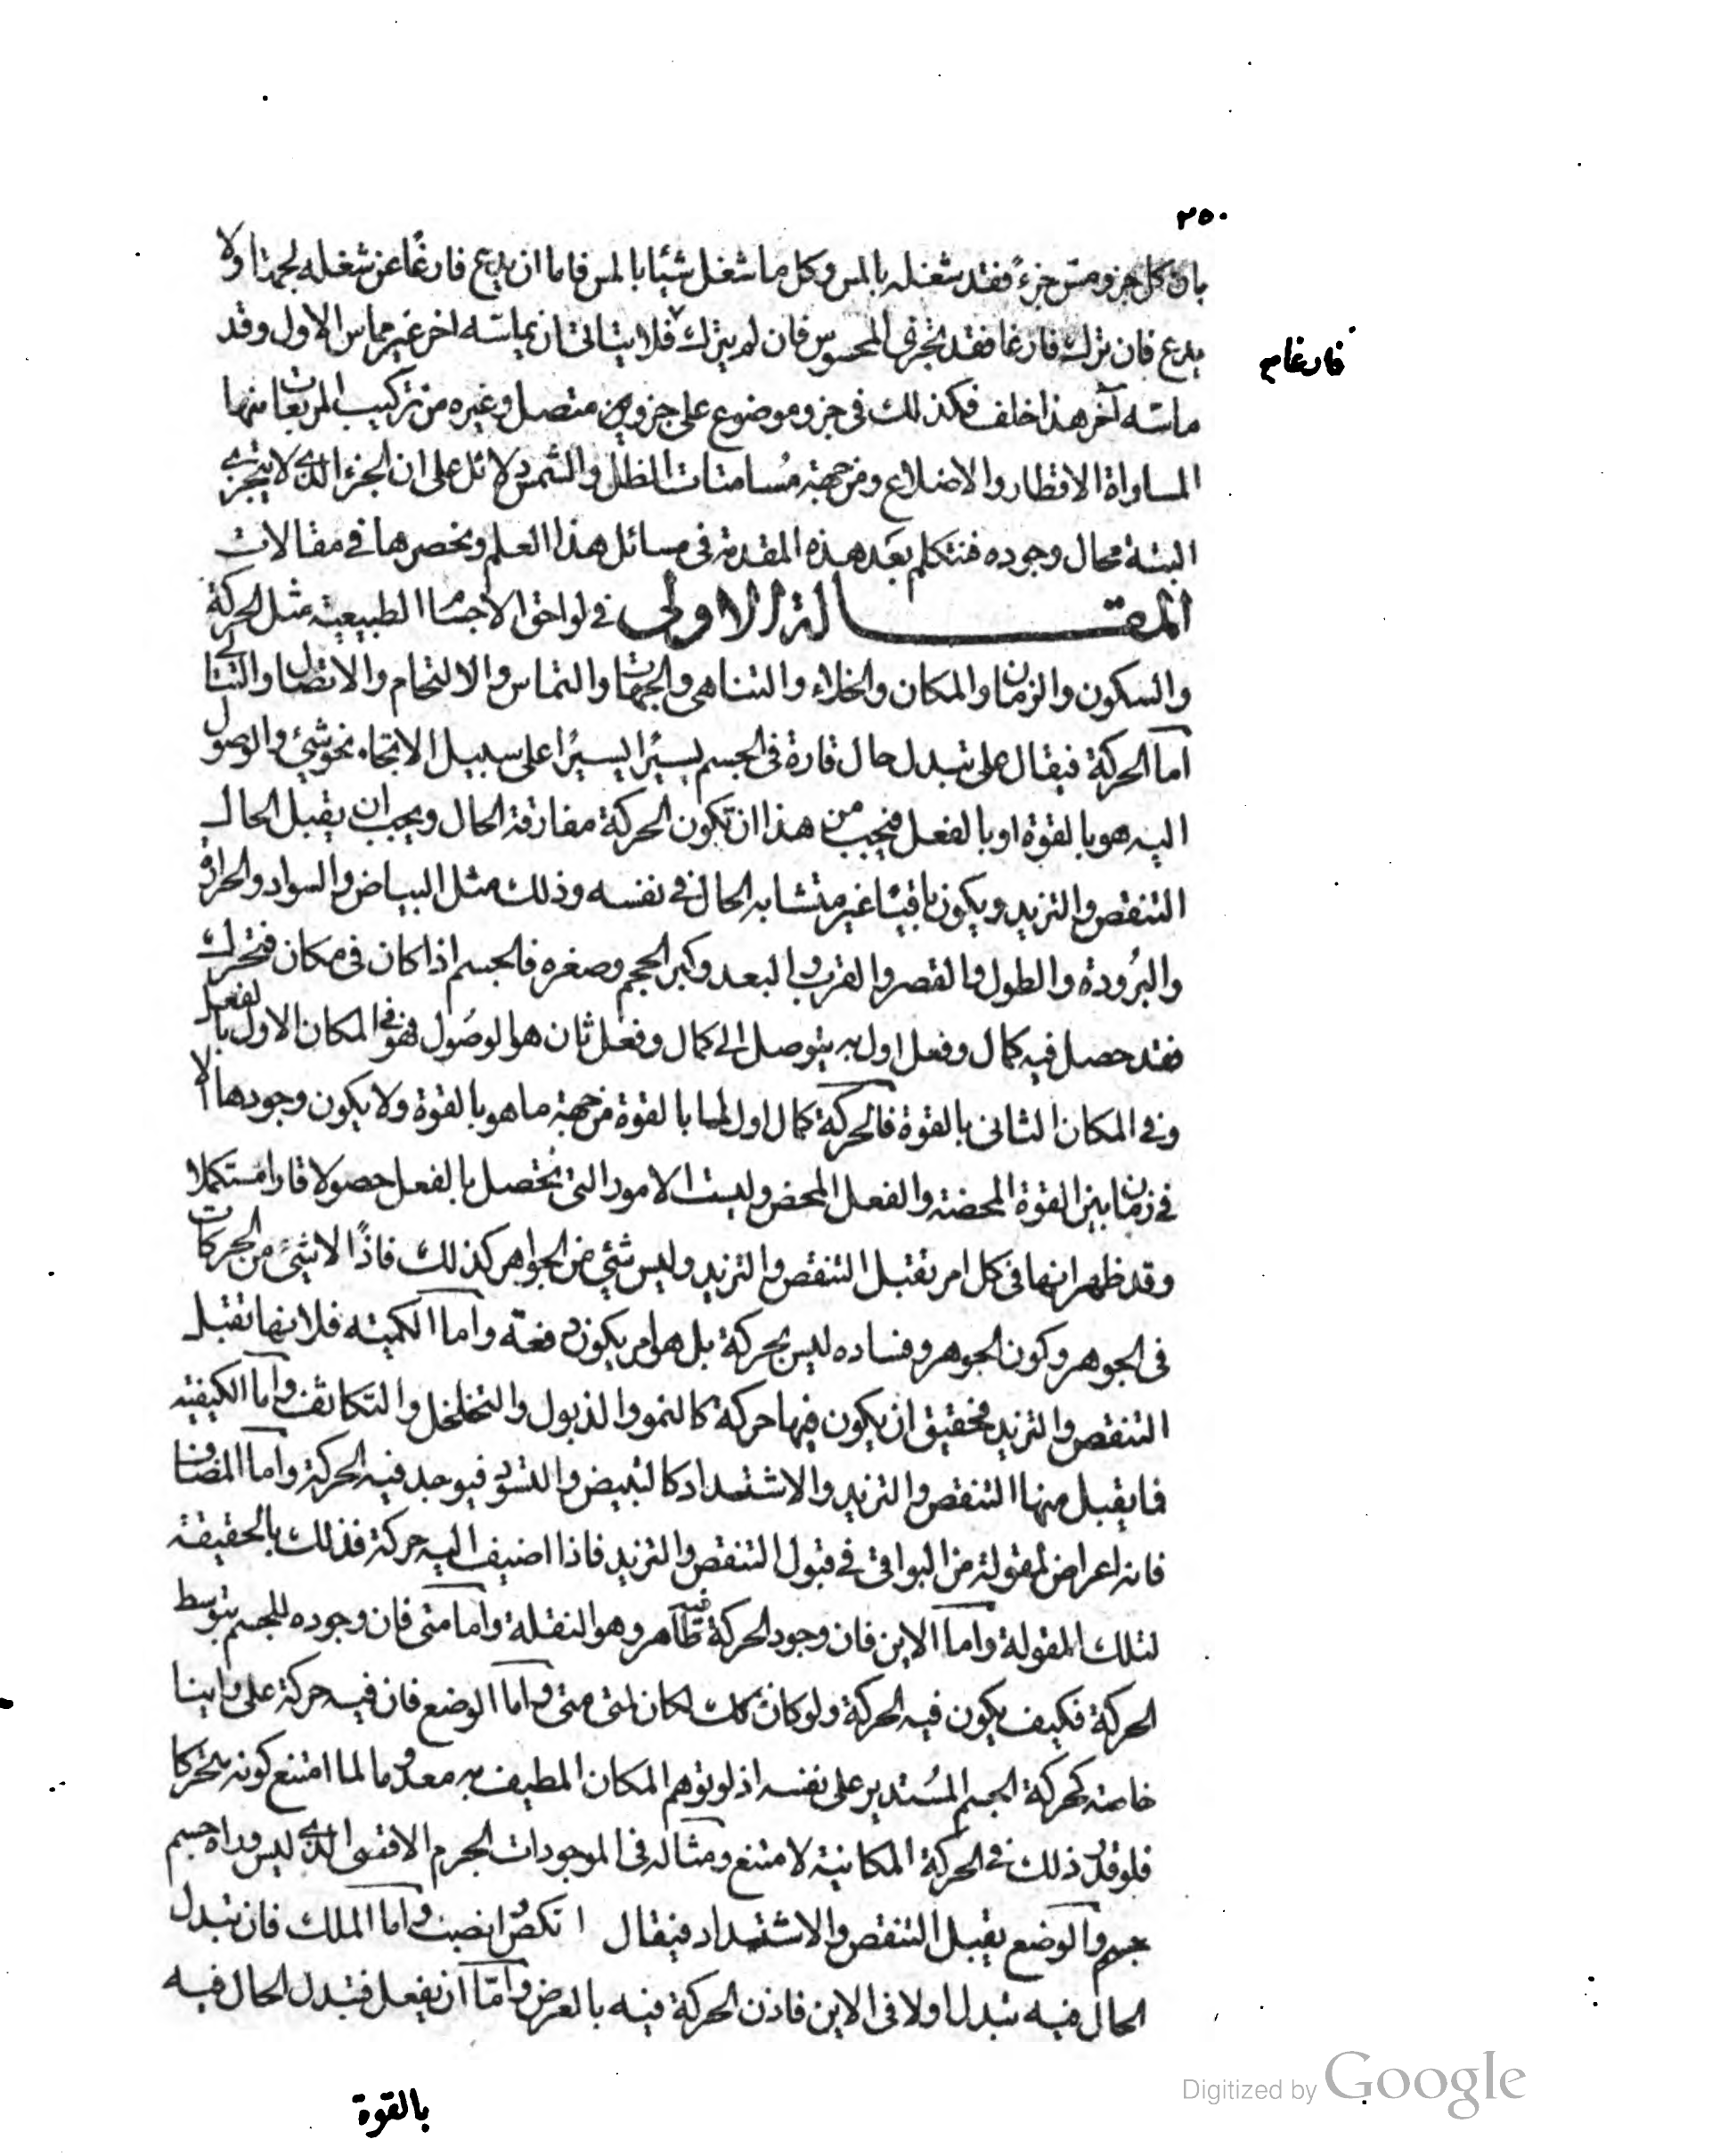 ٢٥٠
بان كل جزو مس جزءً فقد شغله بالمس وكل ما شغل شيئا بالمس فاما ان يدع فارغًا عن شغله لجهة او لا
يدع فان ترك فارغا فقد تجزى المحسوس فان لم يترك فلا يتاتى ان يماسه اخر غير مماس الاول وقد
فارغا
ماسه آخر هذا خلف فكذلك فى جزو موضوع على جزوين متصل وغيره من تركيب المربعات منها
المساواة الاقطار والاضلاع ومن جهة مُسامتات الظل والشمس دلائل على ان الجزء الذى لا يتجزى
البتة محال وجوده فنتكلم بعد هذه المقدمة فى مسائل هذا العلم ونحصرها فى مقالات
المقـــالة الاولى فى لواحق الاجسام الطبيعية مثل الحركة
والسكون والزمان والمكان والخلاء والتناهى والجهات والتماس والالتحام والاتصال والتتالى
اما الحركة فيقال على تبدل حال قارة فى الجسم يسيرًا يسيرًا على سبيل الاتجاه نحو شئ والوصول
اليه هو بالقوة او بالفعل فيجب من هذا ان تكون الحركة مفارقة الحال ويجب ان يقبل الحال
التنقص والتزيد ويكون باقيًا غير متشابه الحال فى نفسه وذلك مثل البياض والسواد والحرارة
والبُرودة والطول والقصر والقرب والبعد وكبر الحجم وصغره فالجسم اذا كان فى مكان فتحرك
فقد حصل فيه كمال وفعل اول به يتوصل الى كمال وفعل ثان هو الوصُول فهو فى المكان الاول بالفعل
وفى المكان الثانى بالقوة فالحركة كمال اول لما بالقوة من جهة ما هو بالقوة ولا يكون وجودها الا
فى زمان بين القوة المحضة والفعل المحض وليست الامور التى تحصل بالفعل حصولا قارا مستكملا
وقد ظهر انها فى كل امر تقبل التنقص والتزيد وليس شئ من الجواهر كذلك فاذًا لا شئ من الحركات
فى الجوهر وكون الجوهر وفساده ليس بحركة بل هو امر يكون دفعة واما الكمية فلانها تقبل
التنقص والتزيد فخقيق ان يكون فيها حركة كالنمو والذبول والتخلخل والتكاثف واما الكيفية
فما يقبل منها التنقص والتزيد والاشتداد كالتبيض والتسود فيوجد فيه الحركة واما المضاف
فانه اعراض لمقولة من البواقى فى قبول التنقص والتزيد فاذا اضيف اليه حركة فذلك بالحقيقة
لتلك المقولة واما الاين فان وجود الحركة فيه ظاهر وهو النقلة واما متى فان وجوده للجسم بتوسط
الحركة فكيف يكون فيه الحركة ولو كان كذلك لكان لمتى متى واما الوضع فان فيه حركة على راينا
خاصة كحركة الجسم المُستدير على نفسه اذ لو توهم المكان المطيف به معدوما لما امتنع كونه متحركا
فلو قدر ذلك فى الحركة المكانية لامتنع ومثاله فى الموجودات الجرم الاقصى الذى ليس وراه جسم
جسم والوضع يقبل التنقص والاشتداد فيقال انصب وانكس واما الملك فان تبدل
الحال فيه تبدل اولا فى الاين فاذن الحركة فيه بالعرض واما ان يفعل فتبدل الحال فيه
بالقوة
Digitized by Google